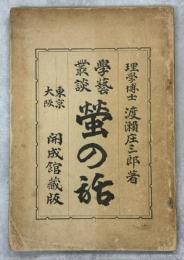 理學博士 渡瀨庄三郎著
學藝叢談
螢の話
東京
大阪
開成館藏版